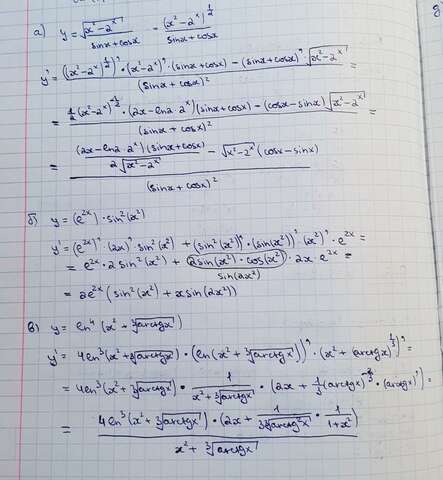 а) y = √(x²-2ˣ) / (sinx+cosx) = (x²-2ˣ)^(1/2) / (sinx+cosx)
y' = (((x²-2ˣ)^(1/2))' · (x²-2ˣ)' · (sinx+cosx) - (sinx+cosx)' · √(x²-2ˣ)) / (sinx+cosx)² =
= (1/2 (x²-2ˣ)^(-1/2) · (2x-ln2·2ˣ)(sinx+cosx) - (cosx-sinx)√(x²-2ˣ)) / (sinx+cosx)² =
= ((2x-ln2·2ˣ)(sinx+cosx) / (2√(x²-2ˣ)) - √(x²-2ˣ)(cosx-sinx)) / (sinx+cosx)²
б) y = (e^(2x)) · sin²(x²)
y' = (e^(2x))' (2x)' sin²(x²) + (sin²(x²))' · (sin(x²))' (x²)' · e^(2x) =
= e^(2x) · 2 sin²(x²) + 2sin(x²)·cos(x²) · 2x · e^(2x) =
sin(2x²)
= 2e^(2x) (sin²(x²) + x sin(2x²))
в) y = ln⁴(x² + ∛(arctgx))
y' = 4ln³(x²+∛(arctgx)) · (ln(x²+∛(arctgx)))' · (x²+(arctgx)^(1/3))' =
= 4ln³(x²+∛(arctgx)) · 1/(x²+∛(arctgx)) · (2x + 1/3 (arctgx)^(-2/3) · (arctgx)') =
= (4ln³(x²+∛(arctgx)) · (2x + 1/(3∛(arctg²x)) · 1/(1+x²))) / (x² + ∛(arctgx))